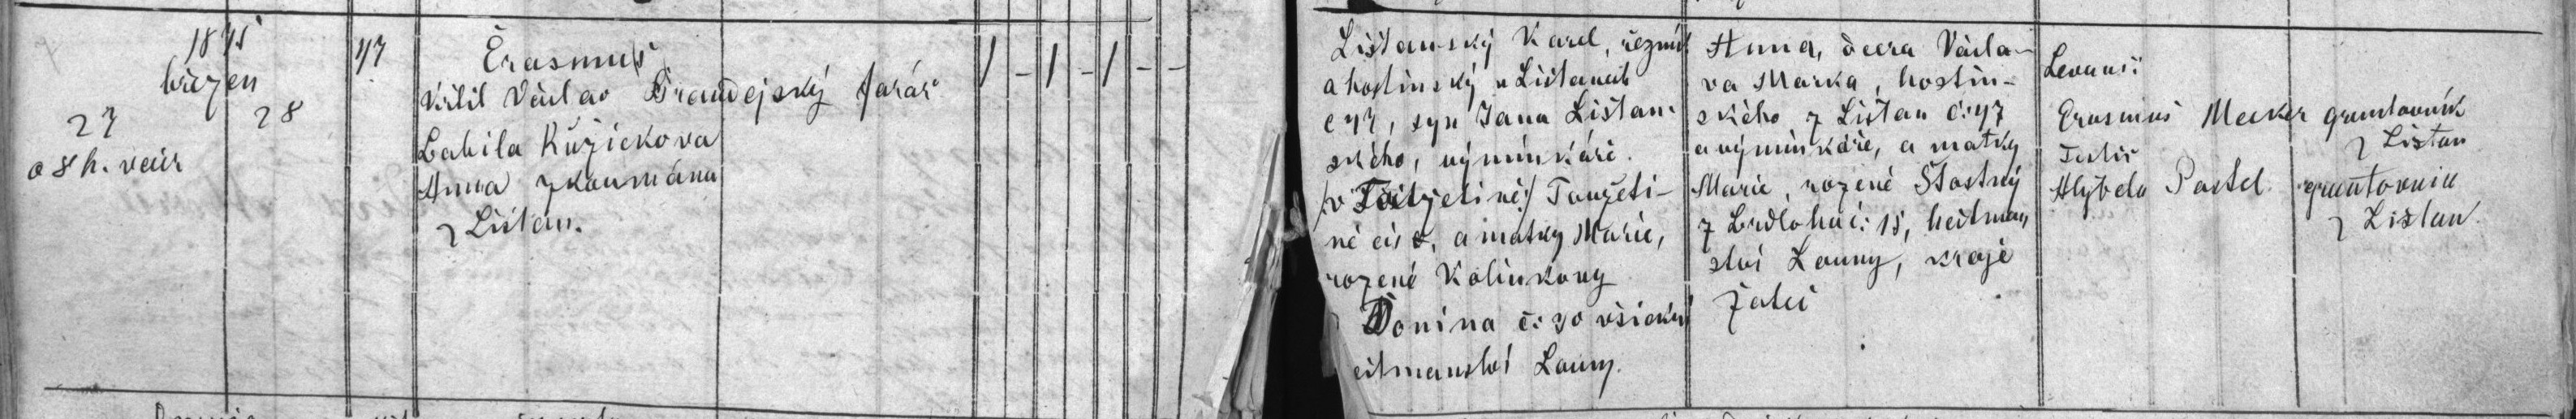 1875
březen
27 28
o 8 h. večír
47
Erasmus
Křtil Václav Prandejský farář
Babila Růžičkova
Anna
z Lištan.
1 - 1 - 1 - -
Lištanský Karel, řezník
a hostinský v Lištanech
č 47, syn Jana Lištan-
ského, výminkáře
Toužeti-
né čís 8, a matky Marie,
rozené Kolinkovy
z Donína č: 30 všickni
heitmanství Louny.
Anna, dcera Václa-
va Marka, hostin-
ského z Lištan č: 47
a výminkáře, a matky
Marie, rozené Štastný
z Brdlohu č: 15, heitman
ství Louny, kraje
Žatci
Erasmus Mecker gruntovník
z Lištan
Testis
Alžběta Pastel gruntovník
z Lištan